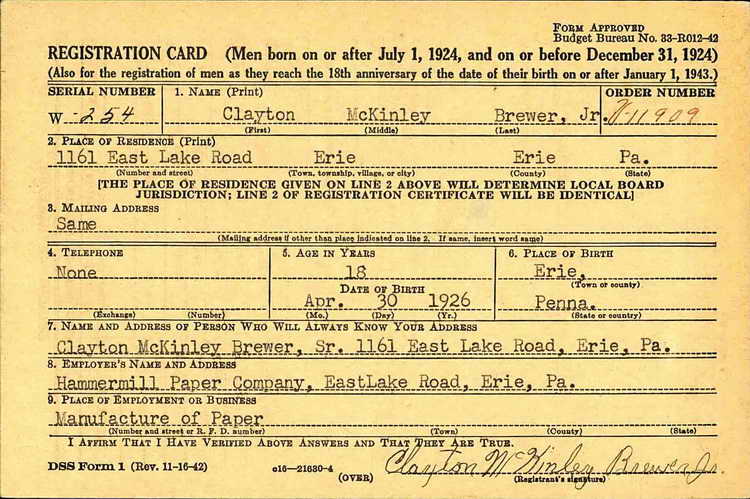 FORM APPROVED
BUDGET BUREAU NO. 33-R012-42
REGISTRATION CARD (Men born on or after July 1, 1924, and on or before December 31, 1924)
(Also for the registration of men as they reach the 18th anniversary of the date of their birth on or after January 1, 1943.)
SERIAL NUMBER 1. NAME (Print) ORDER NUMBER
W -254 Clayton McKinley Brewer, Jr. V-11909
(First) (Middle) (Last)
2. PLACE OF RESIDENCE (Print)
1161 East Lake Road Erie Erie Pa.
(Number and street) (Town, township, village, or city) (County) (State)
[THE PLACE OF RESIDENCE GIVEN ON LINE 2 ABOVE WILL DETERMINE LOCAL BOARD
JURISDICTION; LINE 2 OF REGISTRATION CERTIFICATE WILL BE IDENTICAL]
3. MAILING ADDRESS
Same
(Mailing address if other than place indicated on line 2. If same, insert word same)
4. TELEPHONE 5. AGE IN YEARS 6. PLACE OF BIRTH
None 18 Erie,
(Town or county)
DATE OF BIRTH
Apr. 30 1926 Penna.
(Exchange) (Number) (Mo.) (Day) (Yr.) (State or country)
7. NAME AND ADDRESS OF PERSON WHO WILL ALWAYS KNOW YOUR ADDRESS
Clayton McKinley Brewer, Sr. 1161 East Lake Road, Erie, Pa.
8. EMPLOYER'S NAME AND ADDRESS
Hammermill Paper Company, EastLake Road, Erie, Pa.
9. PLACE OF EMPLOYMENT OR BUSINESS
Manufacture of Paper
(Number and street or R. F. D. number) (Town) (County) (State)
I AFFIRM THAT I HAVE VERIFIED ABOVE ANSWERS AND THAT THEY ARE TRUE.
DSS Form 1 (Rev. 11-16-42) c16—21630-4 Clayton McKinley Brewer Jr.
(OVER) (Registrant's signature)